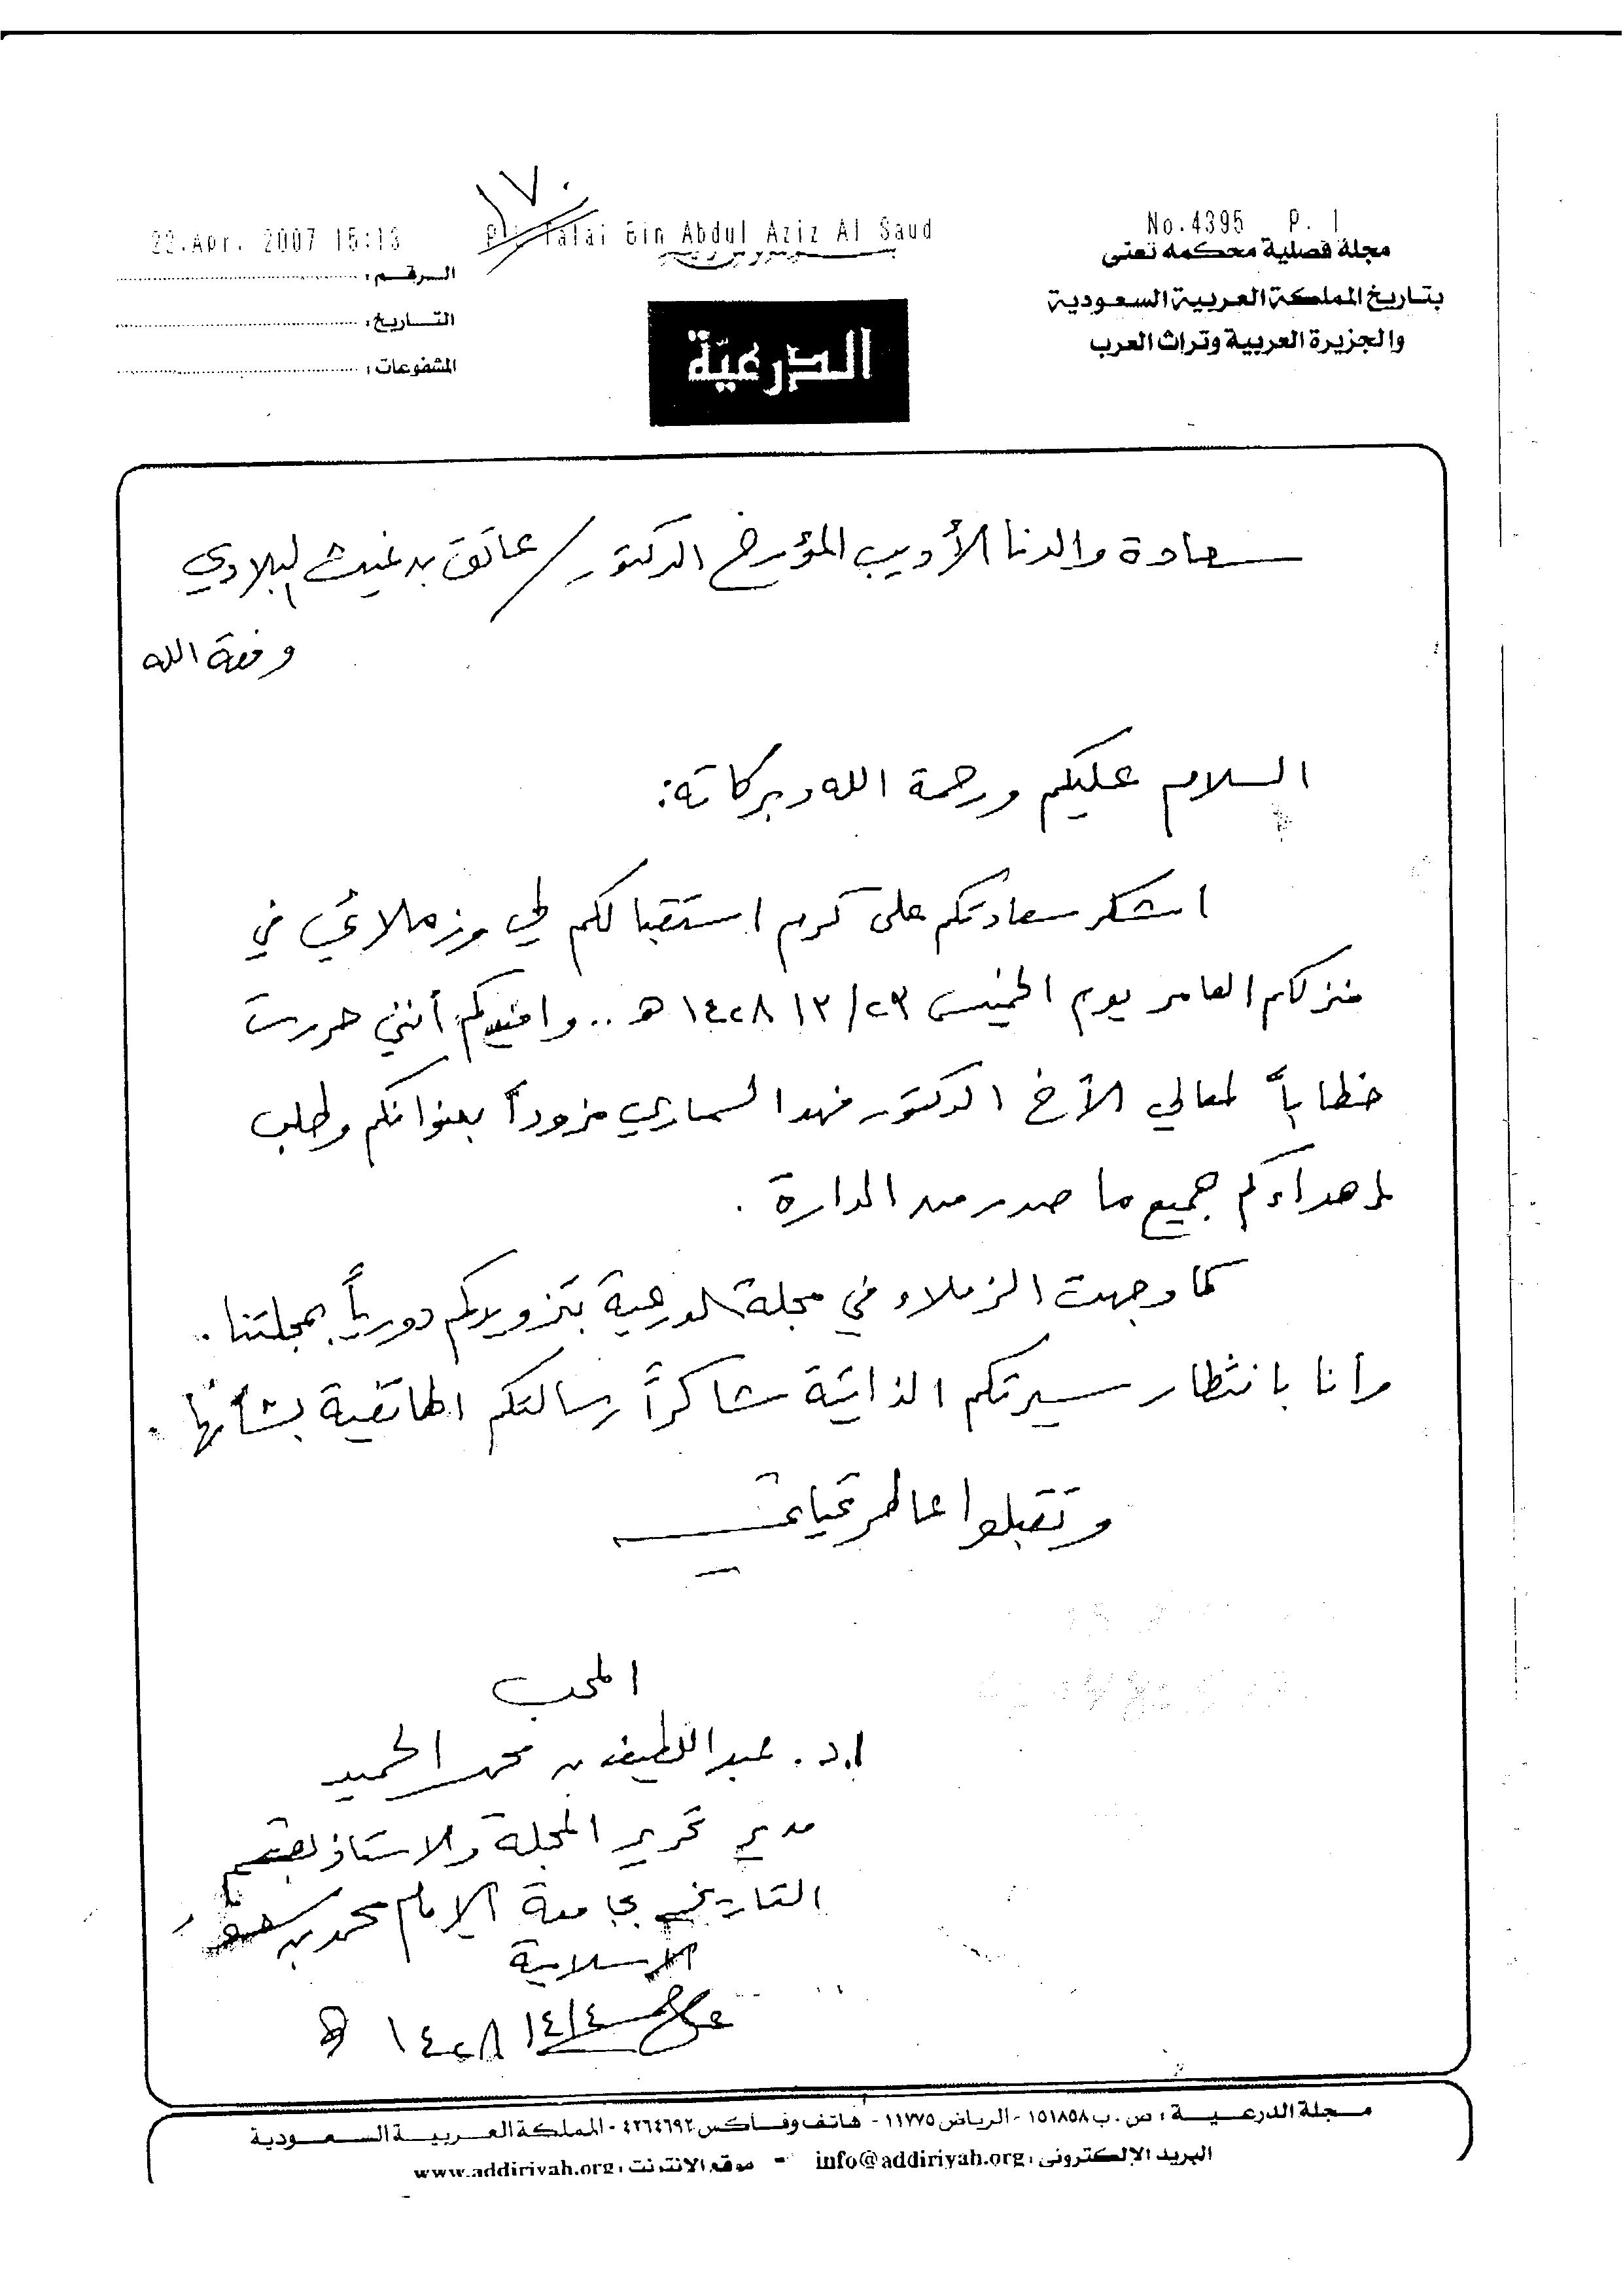 ١٧٠
22.Apr. 2007 15:13 Talal Bin Abdul Aziz Al Saud No.4395 P. 1
مجلة فصلية محكمة تعنى
بتاريخ المملكة العربية السعودية
والجزيرة العربية وتراث العرب
الدرعية
الرقم :
التاريخ :
المشفوعات :
سعادة والدنا الأديب المؤرخ الدكتور / عاتق بن غيث البلادي
وفقه الله
السلام عليكم ورحمة الله وبركاته :
اشكر سعادتكم على كرم استقبالكم لي وزملائي في
منزلكم العامر يوم الخميس ٢٣/ ٣/ ١٤٢٨ هـ .. وافيدكم أنني حررت
خطاباً لمعالي الأخ الدكتور فهد السماري مزوداً بعنوانكم وطلب
إهداءكم جميع ما صدر من الدارة .
كما وجهت الزملاء في مجلة الدرعية بتزويدكم دورياً بمجلتنا .
وأنا بانتظار سيرتكم الذاتية شاكراً رسالتكم الهاتفية بشأنها .
وتقبلوا عاطر تحياتي
المحب
ا.د. عبداللطيف بن محمد الحميد
مدير تحرير المجلة والاستاذ بقسم
التاريخ بجامعة الإمام محمد بن سعود
الاسلامية
٤/٤/ ١٤٢٨ هـ
مجلة الدرعية : ص . ب ١٥١٨٥٨ - الرياض ١١٧٧٥ - هاتف وفاكس ٤٢٦٤٦٩٢ - المملكة العربية السعودية
البريد الإلكتروني : info@addiriyah.org - موقع الانترنت : www.addiriyah.org